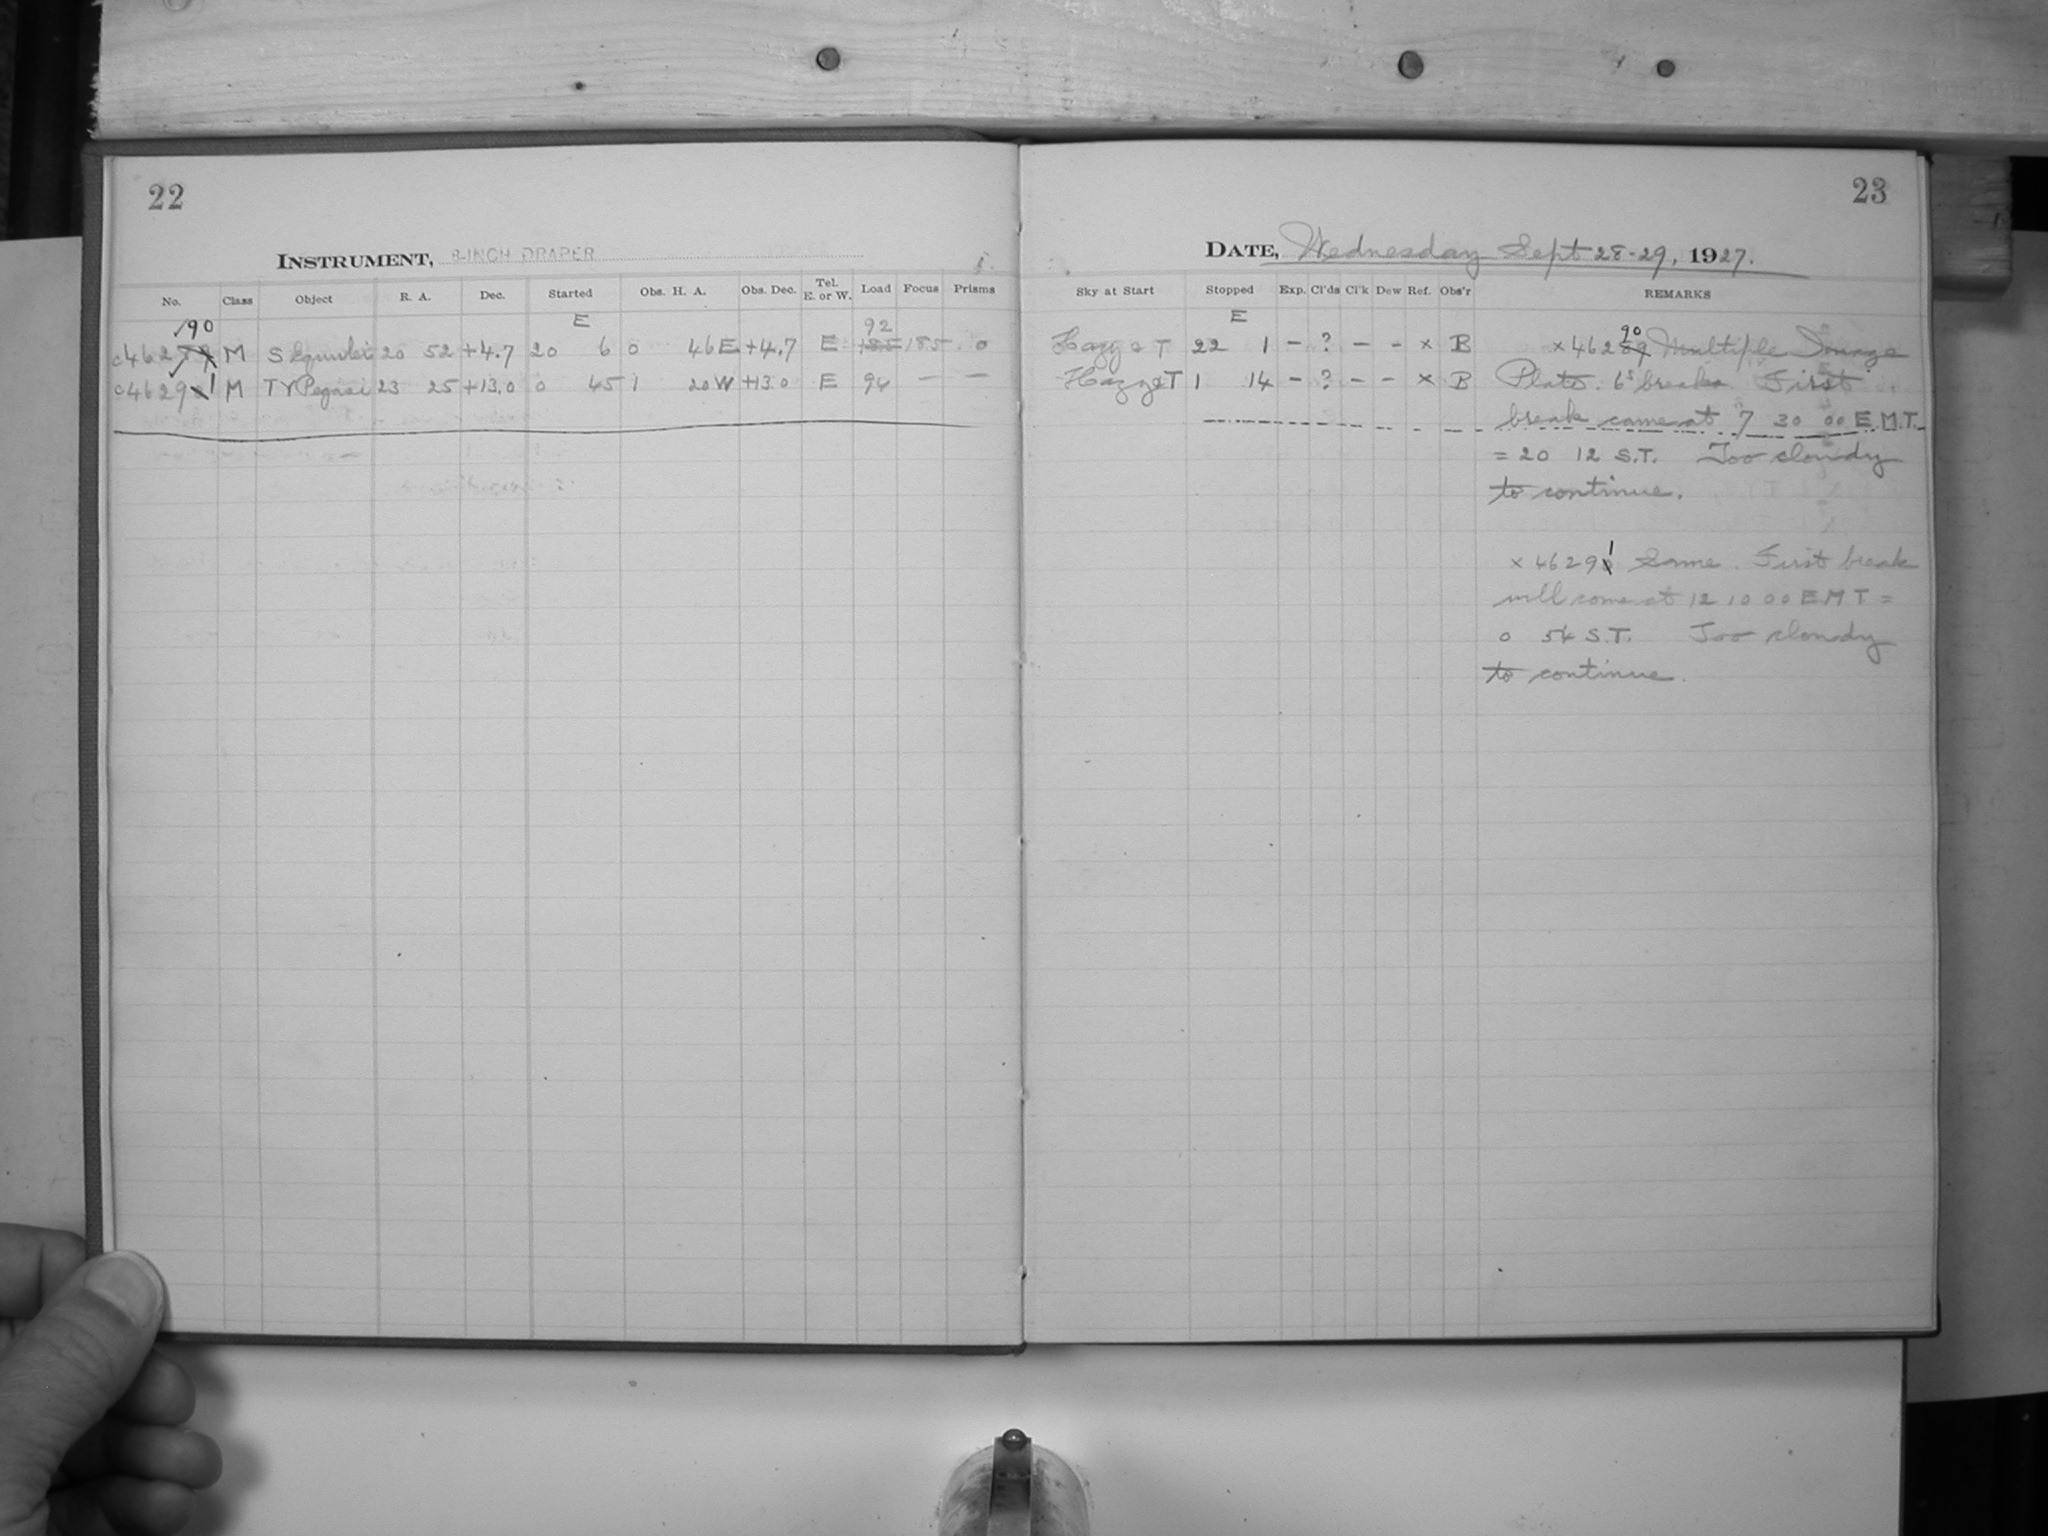 22
INSTRUMENT, 8-INCH DRAPER
No. Class Object R. A. Dec. Started Obs. H. A. Obs. Dec. Tel. E. or W. Load Focus Prisms
90 E 92
c46289 M S Equulei 20 52 +4.7 20 6 0 46 E +4.7 E 185 185 0
c46291 M TY Pegasi 23 25 +13.0 0 45 1 20 W +13.0 E 94 — —
23
DATE, Wednesday Sept 28-29, 1927.
Sky at Start Stopped Exp. Cl'ds Cl'k Dew Ref. Obs'r REMARKS
E 90
Hazy T 22 1 - ? - - x B x 46289 Multiple Image
Hazy T 1 14 - ? - - x B Plate. 6s breaks First
break came at 7 30 00 E.M.T.
= 20 12 S.T. Too cloudy
to continue.
x 46291 Same. First break
will come at 12 10 00 E M T =
0 54 S.T. Too cloudy
to continue.